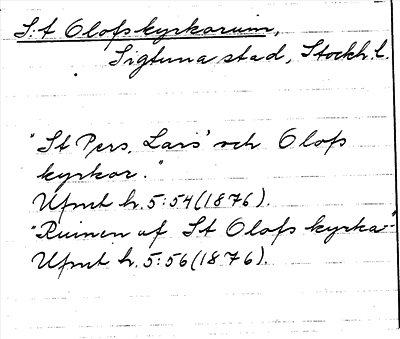 S:t Olofs kyrkoruin,
Sigtuna stad, Stockh. l.
"St Pers, Lars' och Olofs
kyrkor."
Ufmt h. 5:54 (1876).
"Ruinen af St Olofs kyrka"
Ufmt h. 5:56 (1876).